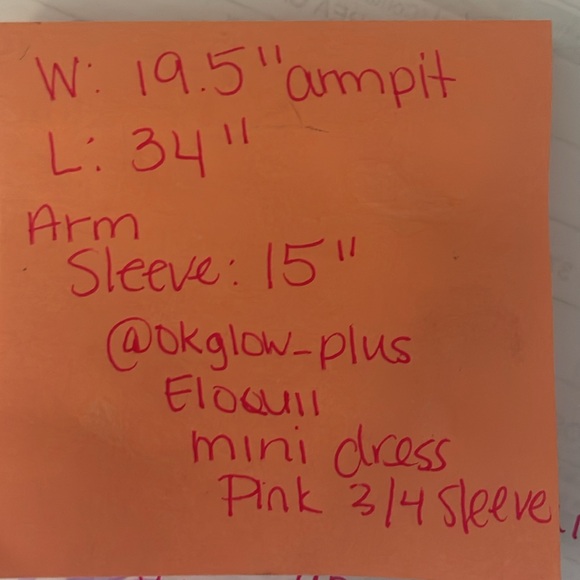 W: 19.5" armpit
L: 34"
Arm
Sleeve: 15"
@okglow_plus
Eloquii
mini dress
Pink 3/4 sleeve